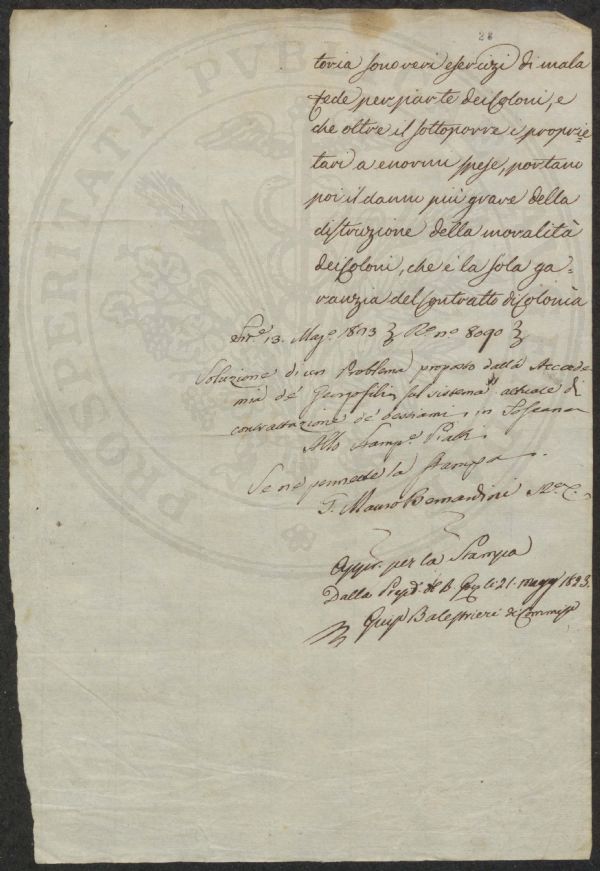 28
toria sono veri esercizi di mala
fede per parte dei Coloni, e
che oltre il sottoporre i proprie=
tari a enormi spese, portano
poi il danno più grave della
distruzione della moralità
dei Coloni, che è la sola ga-
ranzia del contratto di Colonia
13. Magº. 1823 nº. 8090
Soluzione di un Problema proposto dalla Accade
mia de' Georgofili, sul sistema attuale di
contrattazione de' bestiami in Toscana
Allo Stampe. Piatti
Se ne permette la stampa
F. Mauro Bernardini
per la Stampa
Dalla li 21. 1823.
Balestrieri
PROSPERITATI PVBL